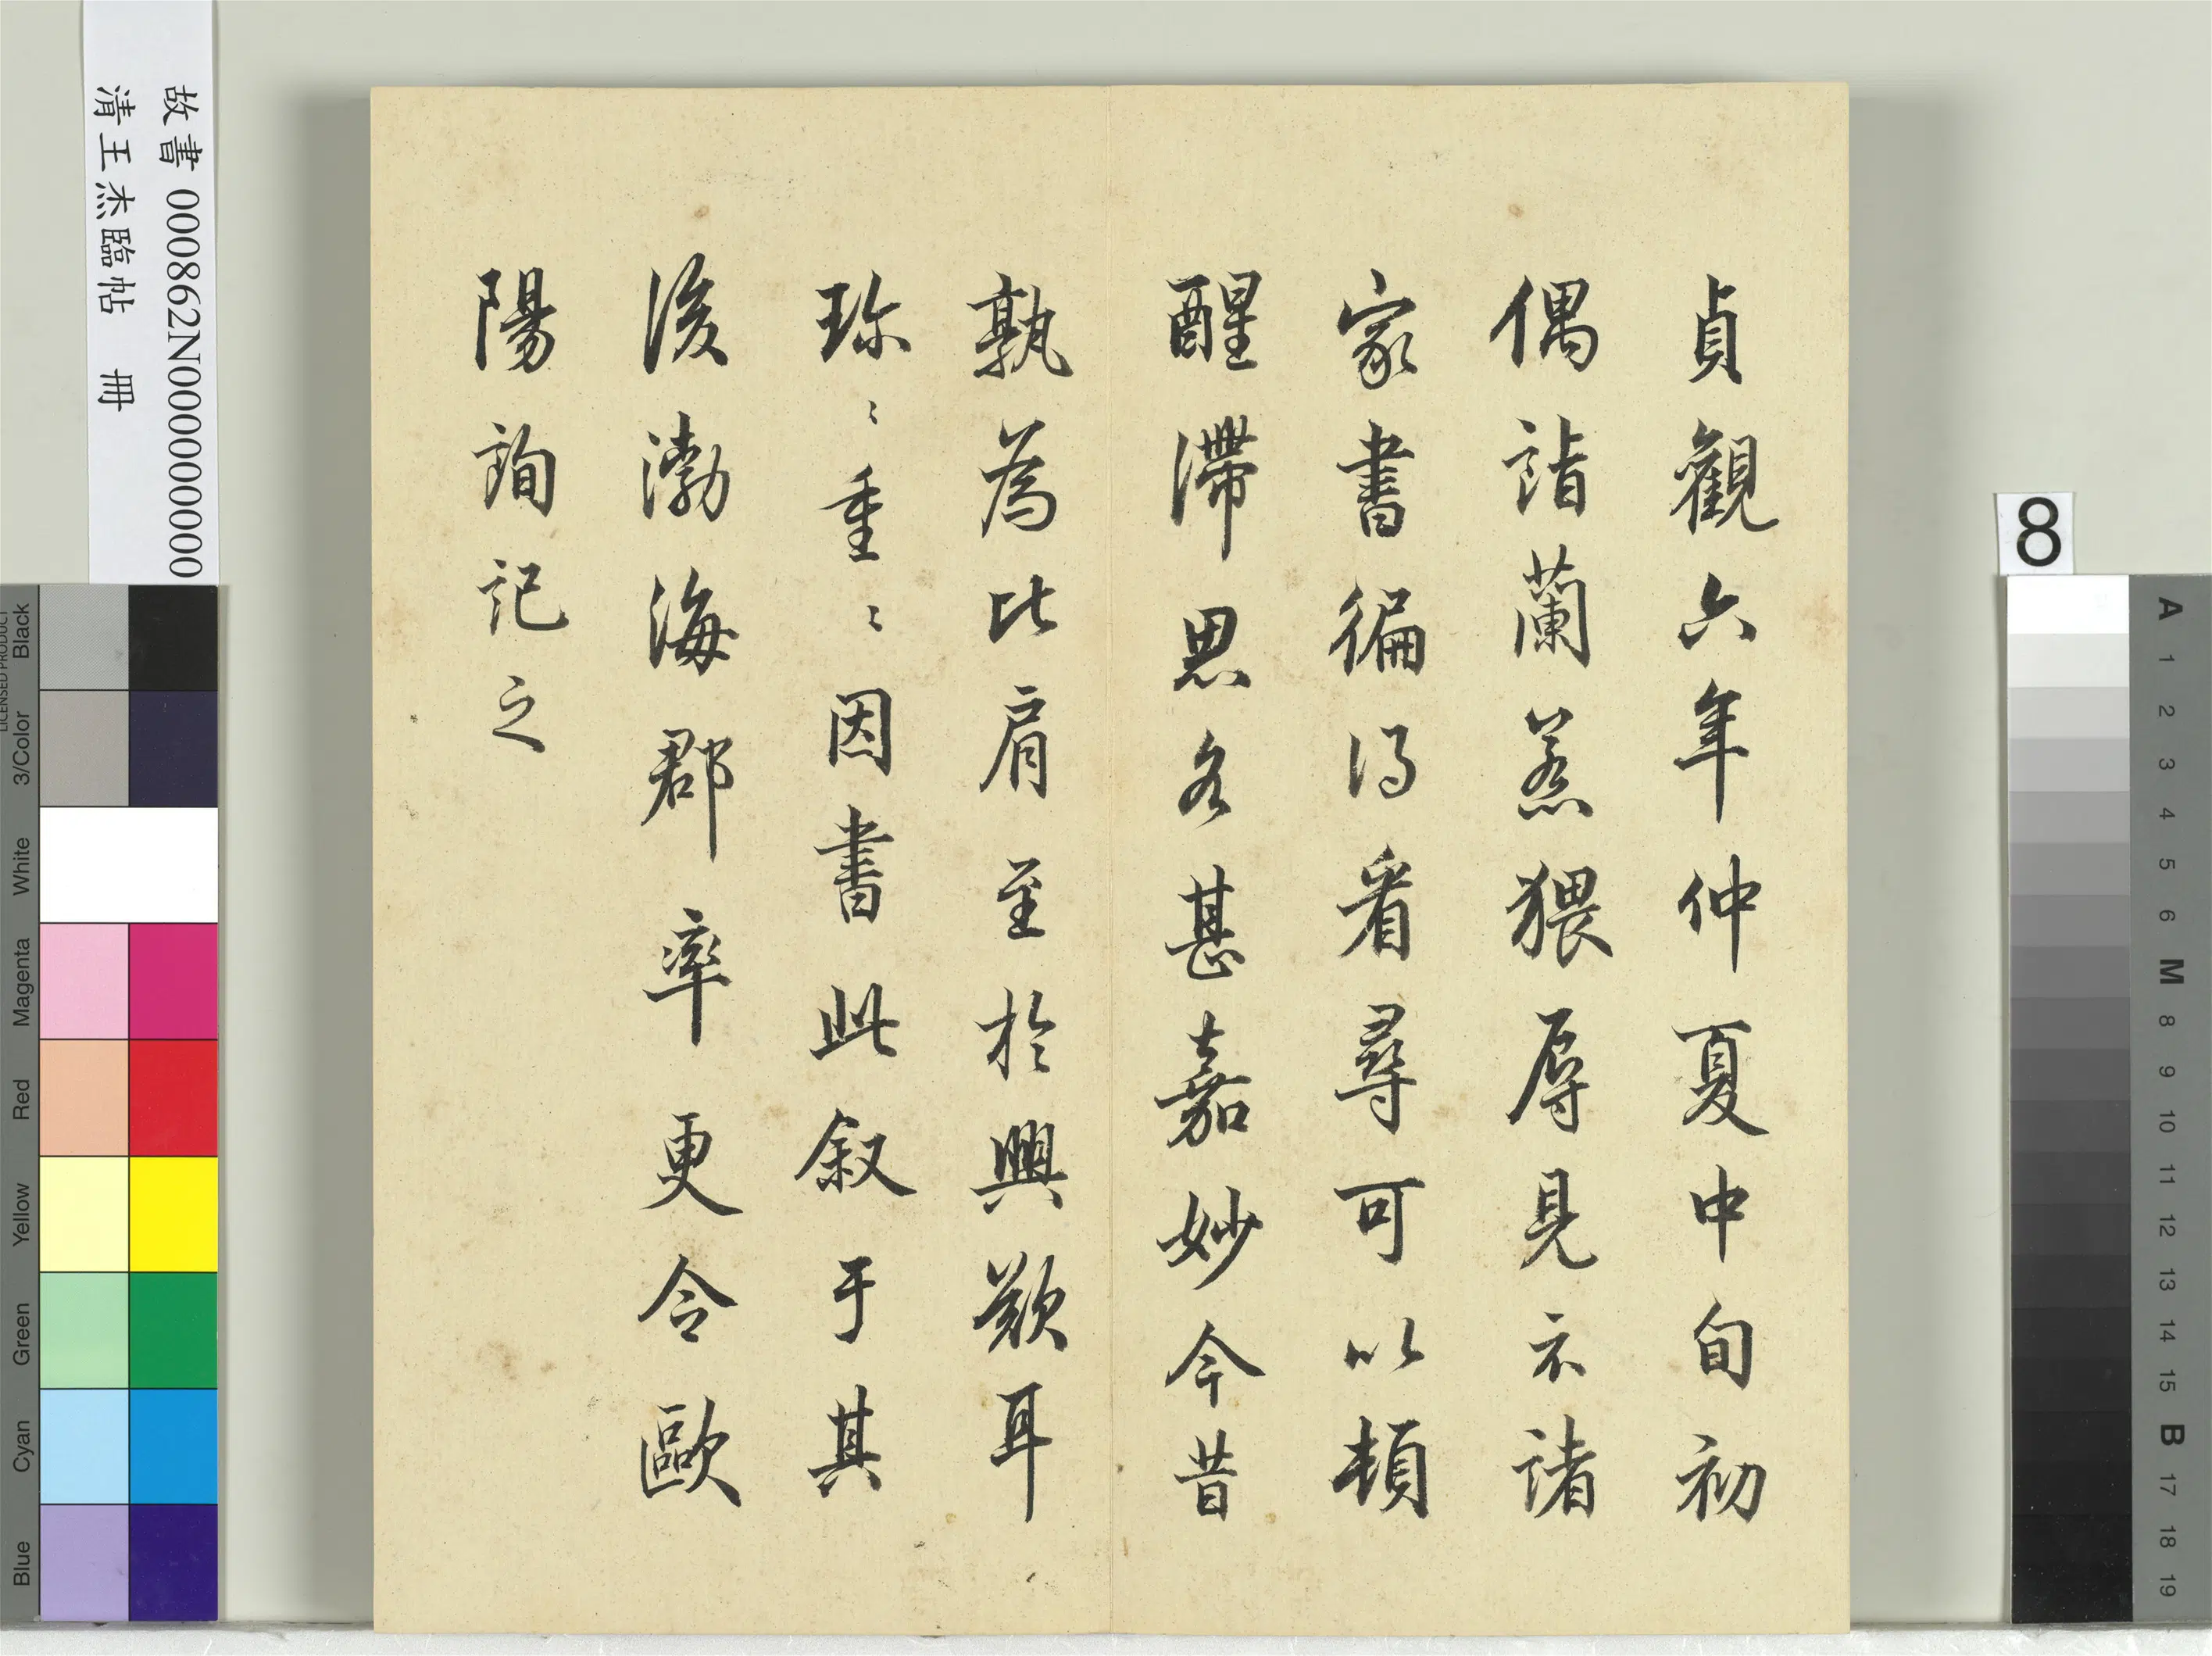 貞觀六年仲夏中旬初
偶詣蘭若猥辱見示諸
家書徧得看尋可以頓
醒滯思各甚嘉妙今昔
孰為比肩至於興歎耳
珎〻重〻因書此叙于其
後渤海郡率更令歐
陽詢記之
故書 000862N000000000
清王杰臨帖 冊
8
LICENSED PRODUCT
Black
3/Color
White
Magenta
Red
Yellow
Green
Cyan
Blue
A
1
2
3
4
5
6
M
8
9
10
11
12
13
14
15
B
17
18
19